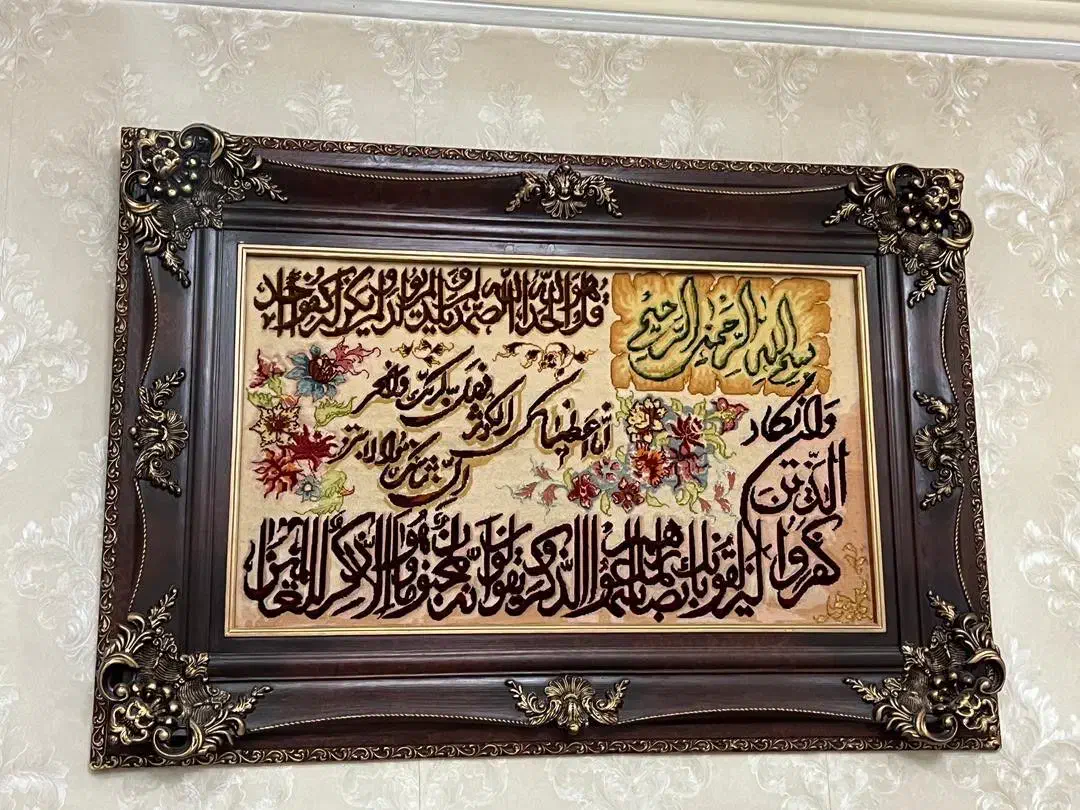 بسم الله الرحمن الرحيم
قل هو الله احد الله الصمد لم يلد ولم يولد ولم يكن له كفوا احد
انا اعطيناك الكوثر
فصل لربك وانحر
ان شانئك هو الابتر
وان يكاد
الذين
كفروا ليزلقونك بابصارهم لما سمعوا الذكر ويقولون انه لمجنون وما هو الا ذكر للعالمين